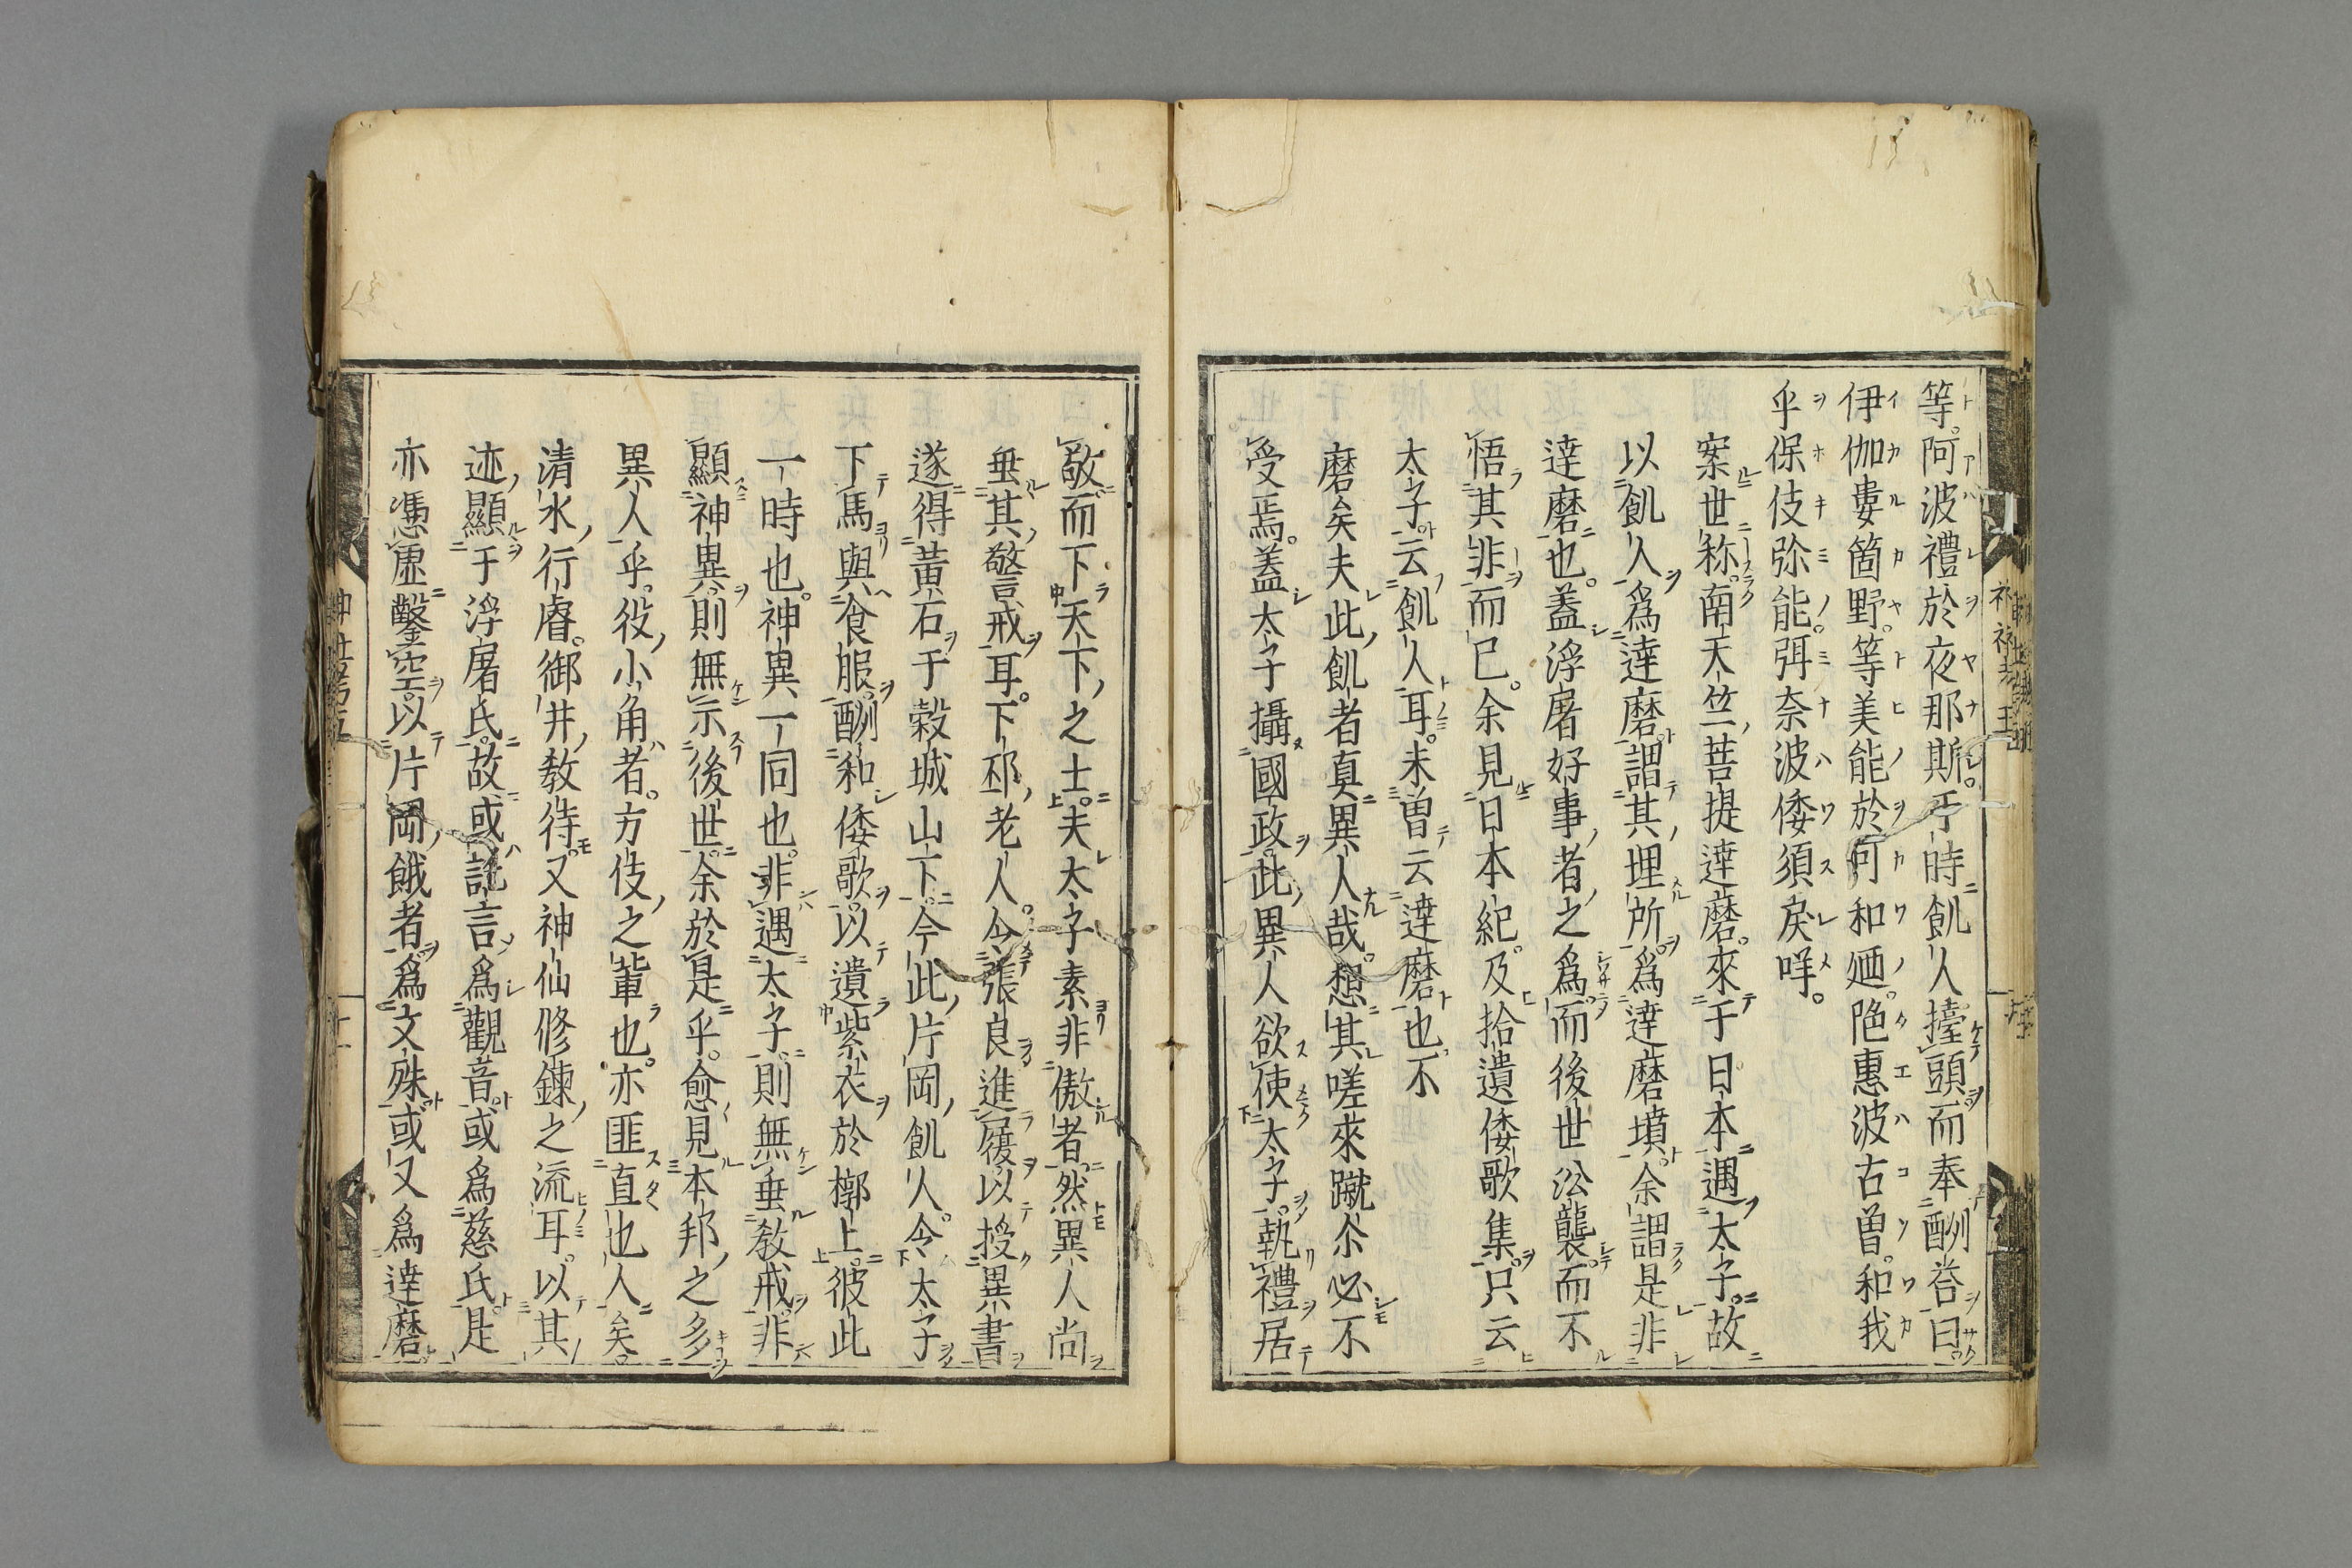 等。阿波禮於夜那斯。于時飢人擡頭而奉酬荅曰
伊伽婁箇野。等美能於何和廼。陁惠波古曽。和我
乎保伎弥能。弭奈波倭須戻咩。
案世称。南天竺菩提達磨。來于日本遇太子。故
以飢人爲達磨。謂其埋所。爲達磨墳。余謂是非
達磨也。蓋浮屠好事者之爲。而後世公襲而不
悟其非而已。余見日本紀。及拾遺倭歌集。只云
太子云飢人耳。未曽云達磨也。不
磨矣夫此飢者真異人哉。想其嗟來蹴尒必不
受焉。蓋太子攝國政。此異人欲使太子。執禮居
敬而下天下之士。夫太子素非傲者。然異人尚
垂其警戒耳。下邳老人。令張良進履。以授異書
遂得黄石于穀城山下。今此片岡飢人。令太子
下馬與食服。酬和倭歌。以遺紫衣於槨上。彼此
一時也。神異一同也。非遇太子。則無垂教戒。非
顯神異。則無示後世。余於是乎。愈見本邦之多
異人乎。役小角者。方伎之輩也。亦匪直也人矣。
清水行睿。御井教待。又神仙修錬之流耳。以其
迹顯于浮屠氏。故或託言爲觀音。或爲慈氏。是
亦憑虚鑿空。以片岡餓者。爲文殊。或又爲達磨